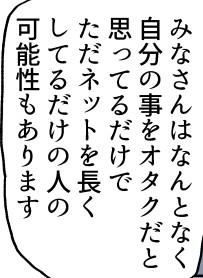 みなさんはなんとなく
自分の事をオタクだと
思ってるだけで
ただネットを長く
してるだけの人の
可能性もあります